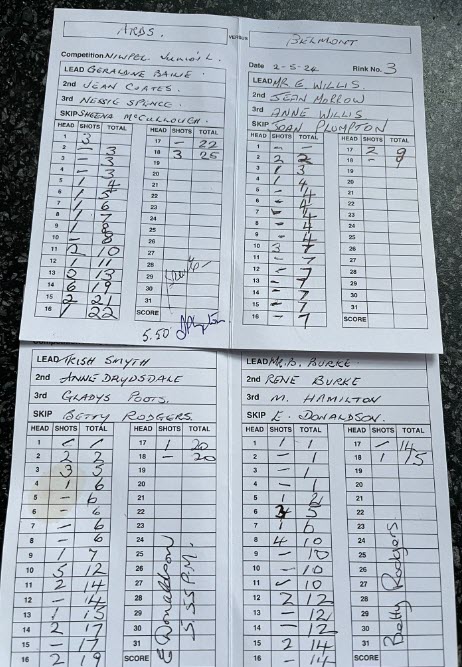 ARDS.
VERSUS
BELMONT
Competition NIWPBL Juniors L.
LEAD GERALDINE BAILIE
2nd JEAN COATES.
3rd NESSIE SPENCE.
SKIP SHEENA McCULLOUGH.
HEAD SHOTS TOTAL HEAD SHOTS TOTAL
1 3 17 - 22
2 - 3 18 3 25
3 - 3 19
4 - 3 20
5 1 4 21
6 1 5 22
7 1 6 23
8 1 7 24
9 1 8 25
10 - 8 26
11 2 10 27
12 1 11 28
13 0 13 29
14 6 19 30
15 2 21 31
16 1 22 SCORE
5.50
Date 2-5-24 Rink No. 3
LEAD MR E. WILLIS
2nd JEAN MORROW
3rd ANNE WILLIS
SKIP JOAN PLUMPTON
HEAD SHOTS TOTAL HEAD SHOTS TOTAL
1 - - 17 2 9
2 2 2 18 - 9
3 1 3 19
4 1 4 20
5 - 4 21
6 - 4 22
7 - 4 23
8 - 4 24
9 - 4 25
10 3 7 26
11 - 7 27
12 - 7 28
13 - 7 29
14 - 7 30
15 - 7 31
16 - 7 SCORE
LEAD TRISH SMYTH
2nd ANNE DRYDSDALE
3rd GLADYS POOTS.
SKIP BETTY RODGERS.
HEAD SHOTS TOTAL HEAD SHOTS TOTAL
1 - - 17 1 20
2 2 2 18 - 20
3 3 3 19
4 1 6 20
5 - 6 21
6 - 6 22
7 - 6 23
8 - 6 24
9 1 7 25
10 5 12 26
11 2 14 27
12 - 14 28
13 1 15 29
14 2 17 30
15 - 17 31
16 2 19 SCORE
E Donaldson
5.55 P.M.
LEAD Mr. B. BURKE
2nd RENE BURKE
3rd M. HAMILTON
SKIP E. DONALDSON.
HEAD SHOTS TOTAL HEAD SHOTS TOTAL
1 1 1 17 - 14
2 - 1 18 1 15
3 - 1 19
4 - 1 20
5 1 2 21
6 3 5 22
7 1 6 23
8 4 10 24
9 - 10 25
10 - 10 26
11 - 10 27
12 2 12 28
13 - 12 29
14 - 12 30
15 2 14 31
16 14 SCORE
Betty Rodgers